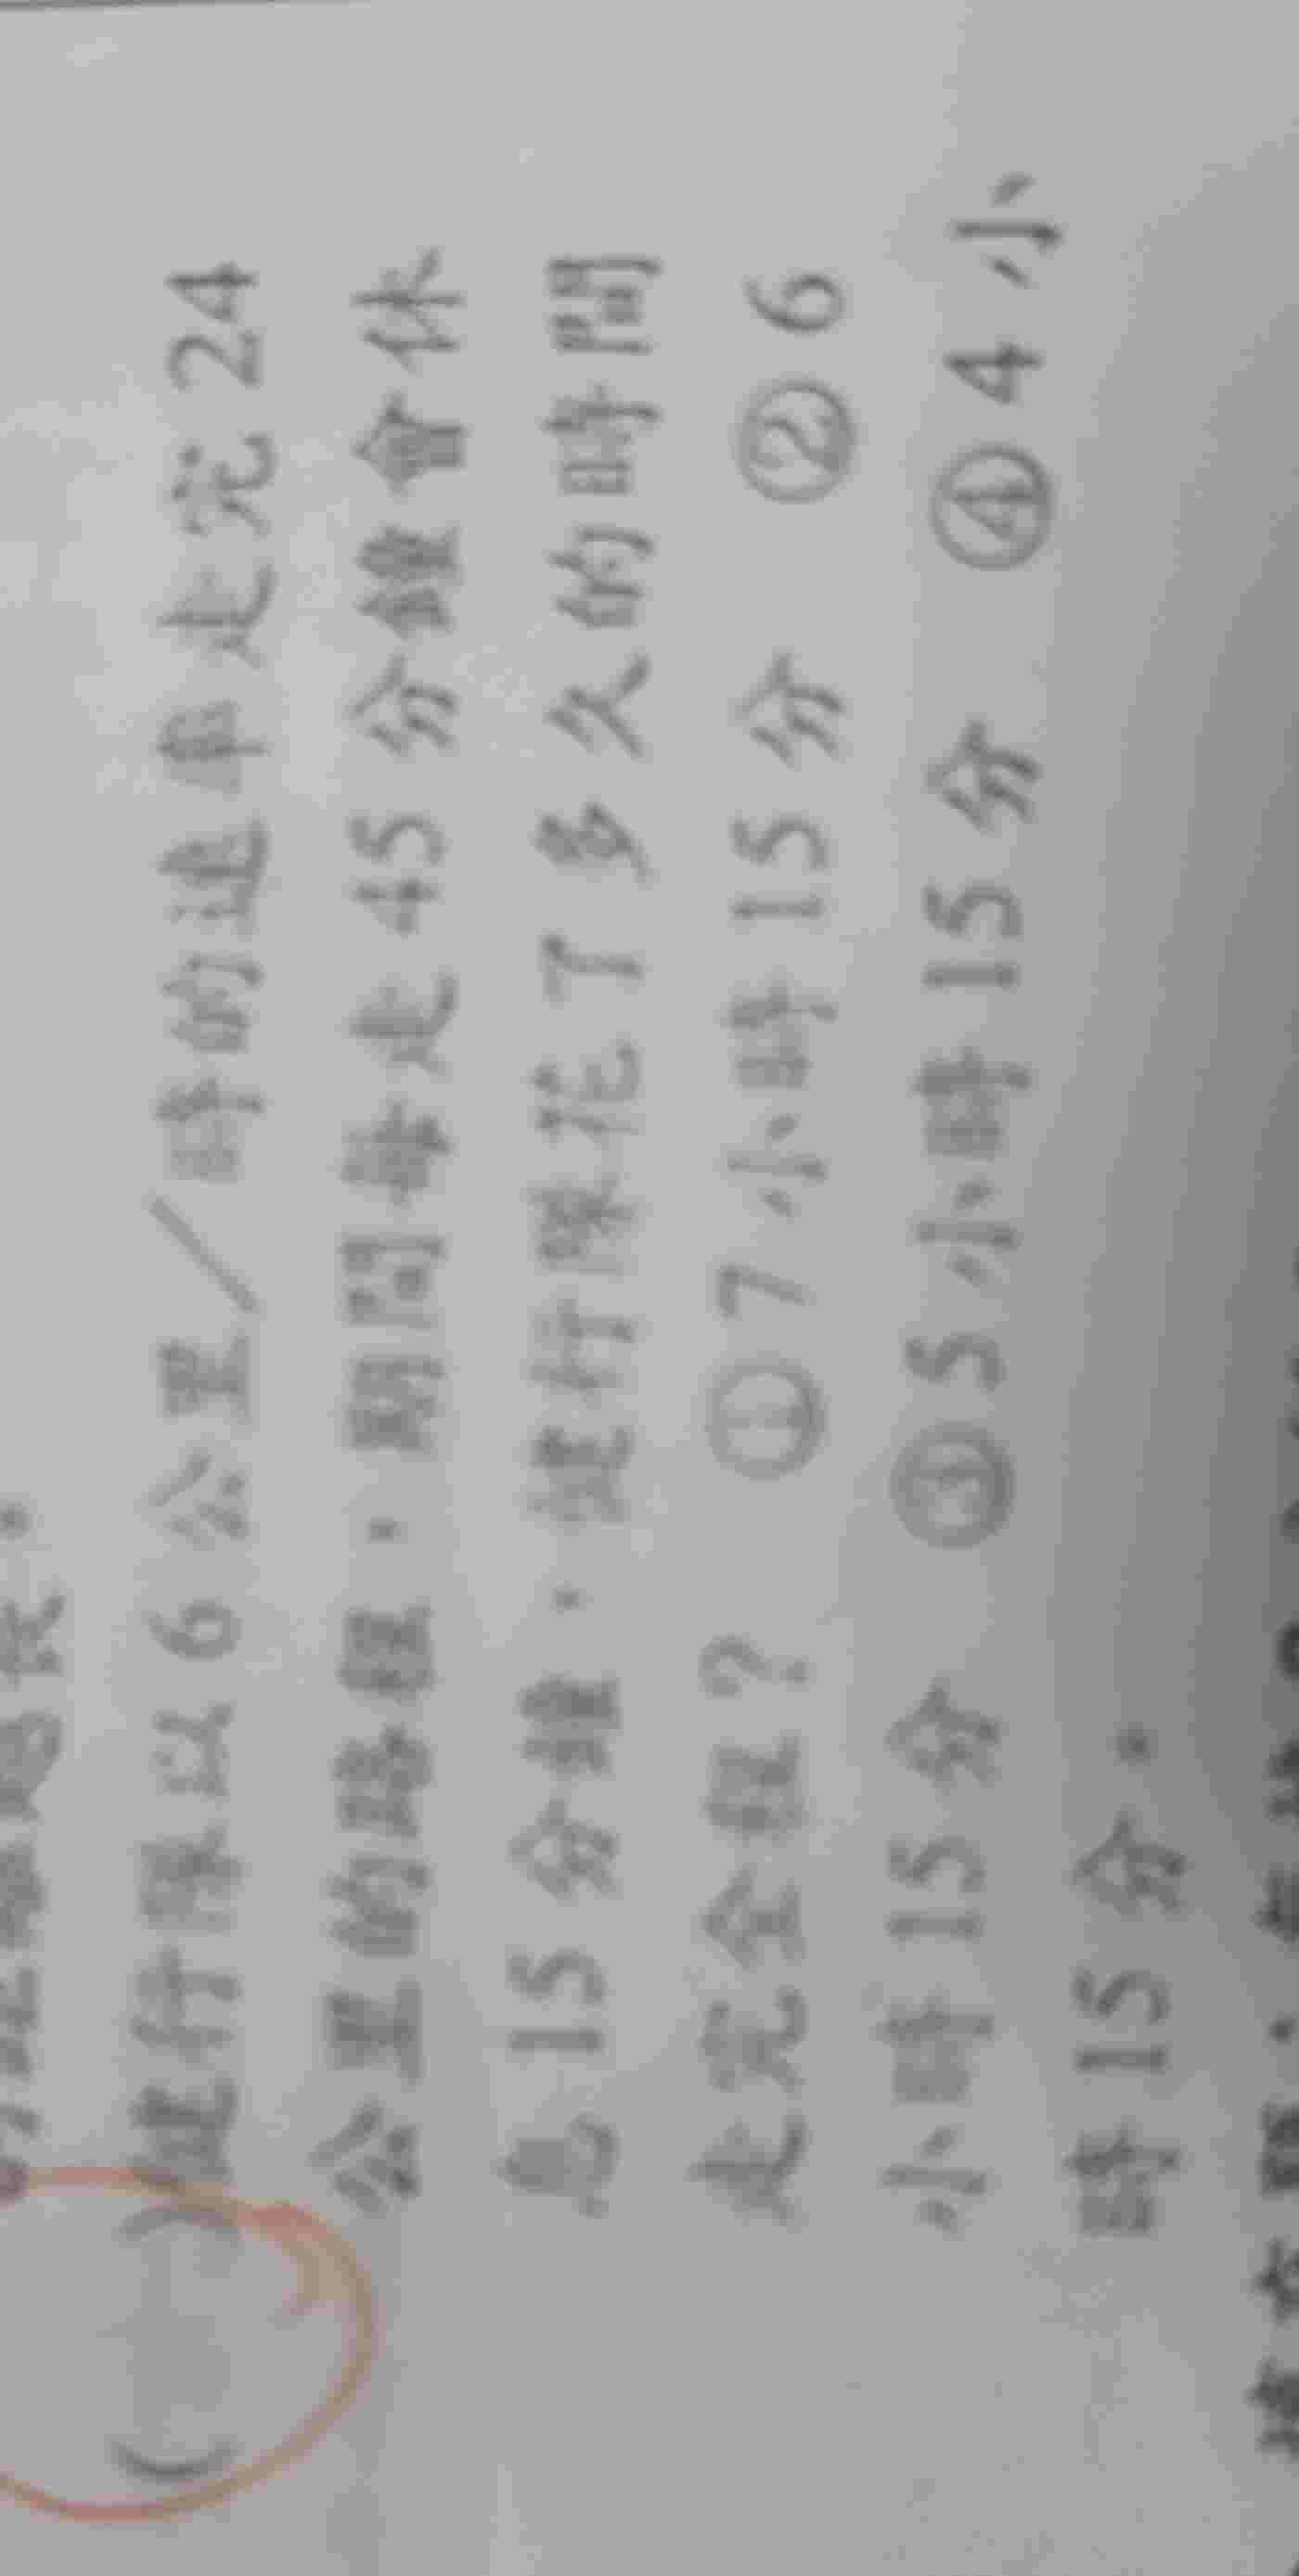 ( )健行隊以6公里╱時的速率走完24
公里的路程,期間每走45分鐘會休
息15分鐘,健行隊花了多久的時間
走完全程? ①7小時15分 ②6
小時15分 ③5小時15分 ④4小
時15分。